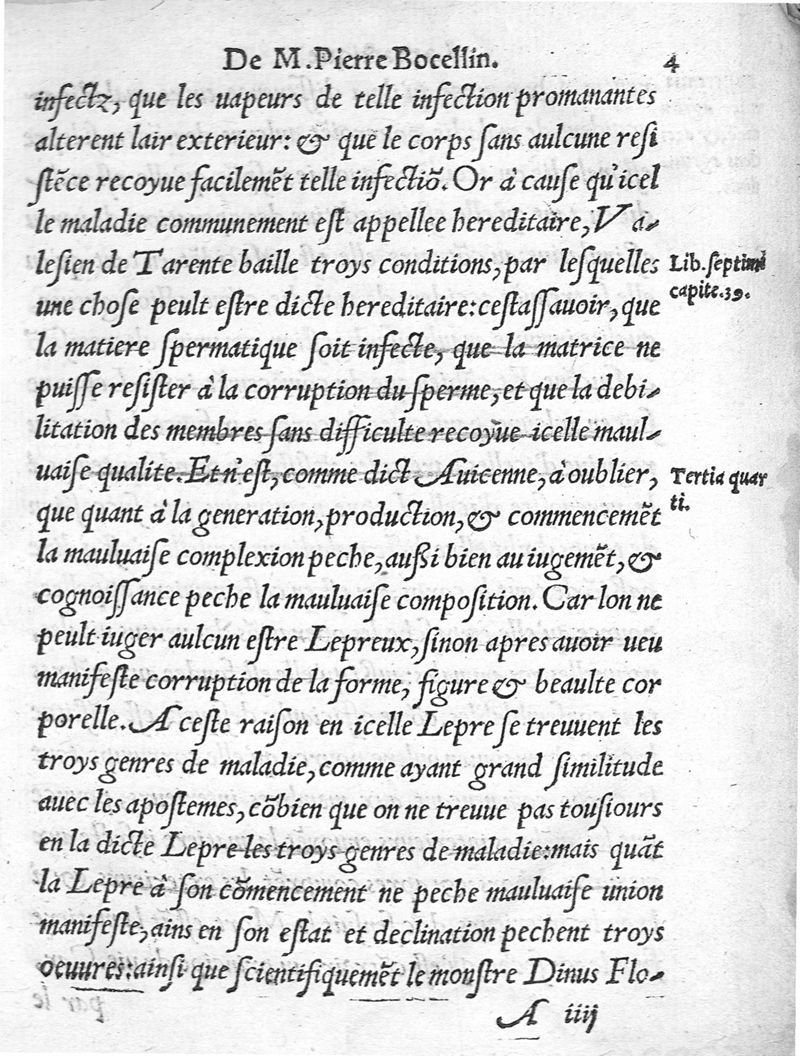 De M. Pierre Bocellin. 4
infectz, que les uapeurs de telle infection promanantes
alterent lair exterieur: & que le corps sans aulcune resi
stẽce recoyue facilemẽt telle infectiõ. Or à cause qu'icel
le maladie communement est appellee hereditaire, Va-
lesien de Tarente baille troys conditions, par lesquelles
Lib. septimi
une chose peult estre dicte hereditaire: cestassauoir, que
capite. 39.
la matiere spermatique soit infecte, que la matrice ne
puisse resister à la corruption du sperme, et que la debi-
litation des membres sans difficulte recoyue icelle maul-
uaise qualite. Et n'est, comme dict Auicenne, à oublier,
Tertia quar
que quant à la generation, production, & commencemẽt
ti.
la mauluaise complexion peche, aussi bien au iugemẽt, &
cognoissance peche la mauluaise composition. Car lon ne
peult iuger aulcun estre Lepreux, sinon apres auoir ueu
manifeste corruption de la forme, figure & beaulte cor
porelle. A ceste raison en icelle Lepre se treuuent les
troys genres de maladie, comme ayant grand similitude
auec les apostemes, cõbien que on ne treuue pas tousiours
en la dicte Lepre les troys genres de maladie: mais quãt
la Lepre à son cõmencement ne peche mauluaise union
manifeste, ains en son estat et declination pechent troys
oeuures: ainsi que scientifiquemẽt le monstre Dinus Flo-
A iiij